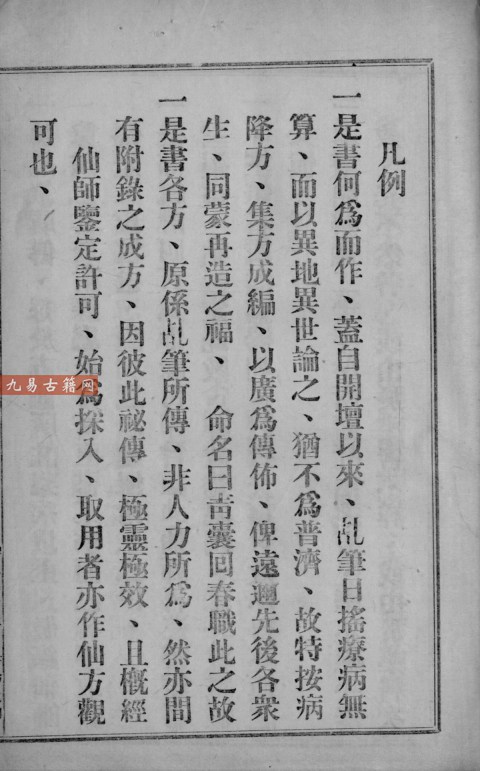 凡例
一是書何爲而作、蓋自開壇以來、乩筆日搖療病無
算、而以異地異世論之、猶不爲普濟、故特按病
降方、集方成編、以廣爲傳佈、俾遠邇先後各衆
生、同蒙再造之福、　命名曰靑囊回春職此之故
一是書各方、原係乩筆所傳、非人力所爲、然亦間
有附錄之成方、因彼此祕傳、極靈極效、且槪經
仙師鑒定許可、始爲採入、取用者亦作仙方觀
可也、
九易古籍网